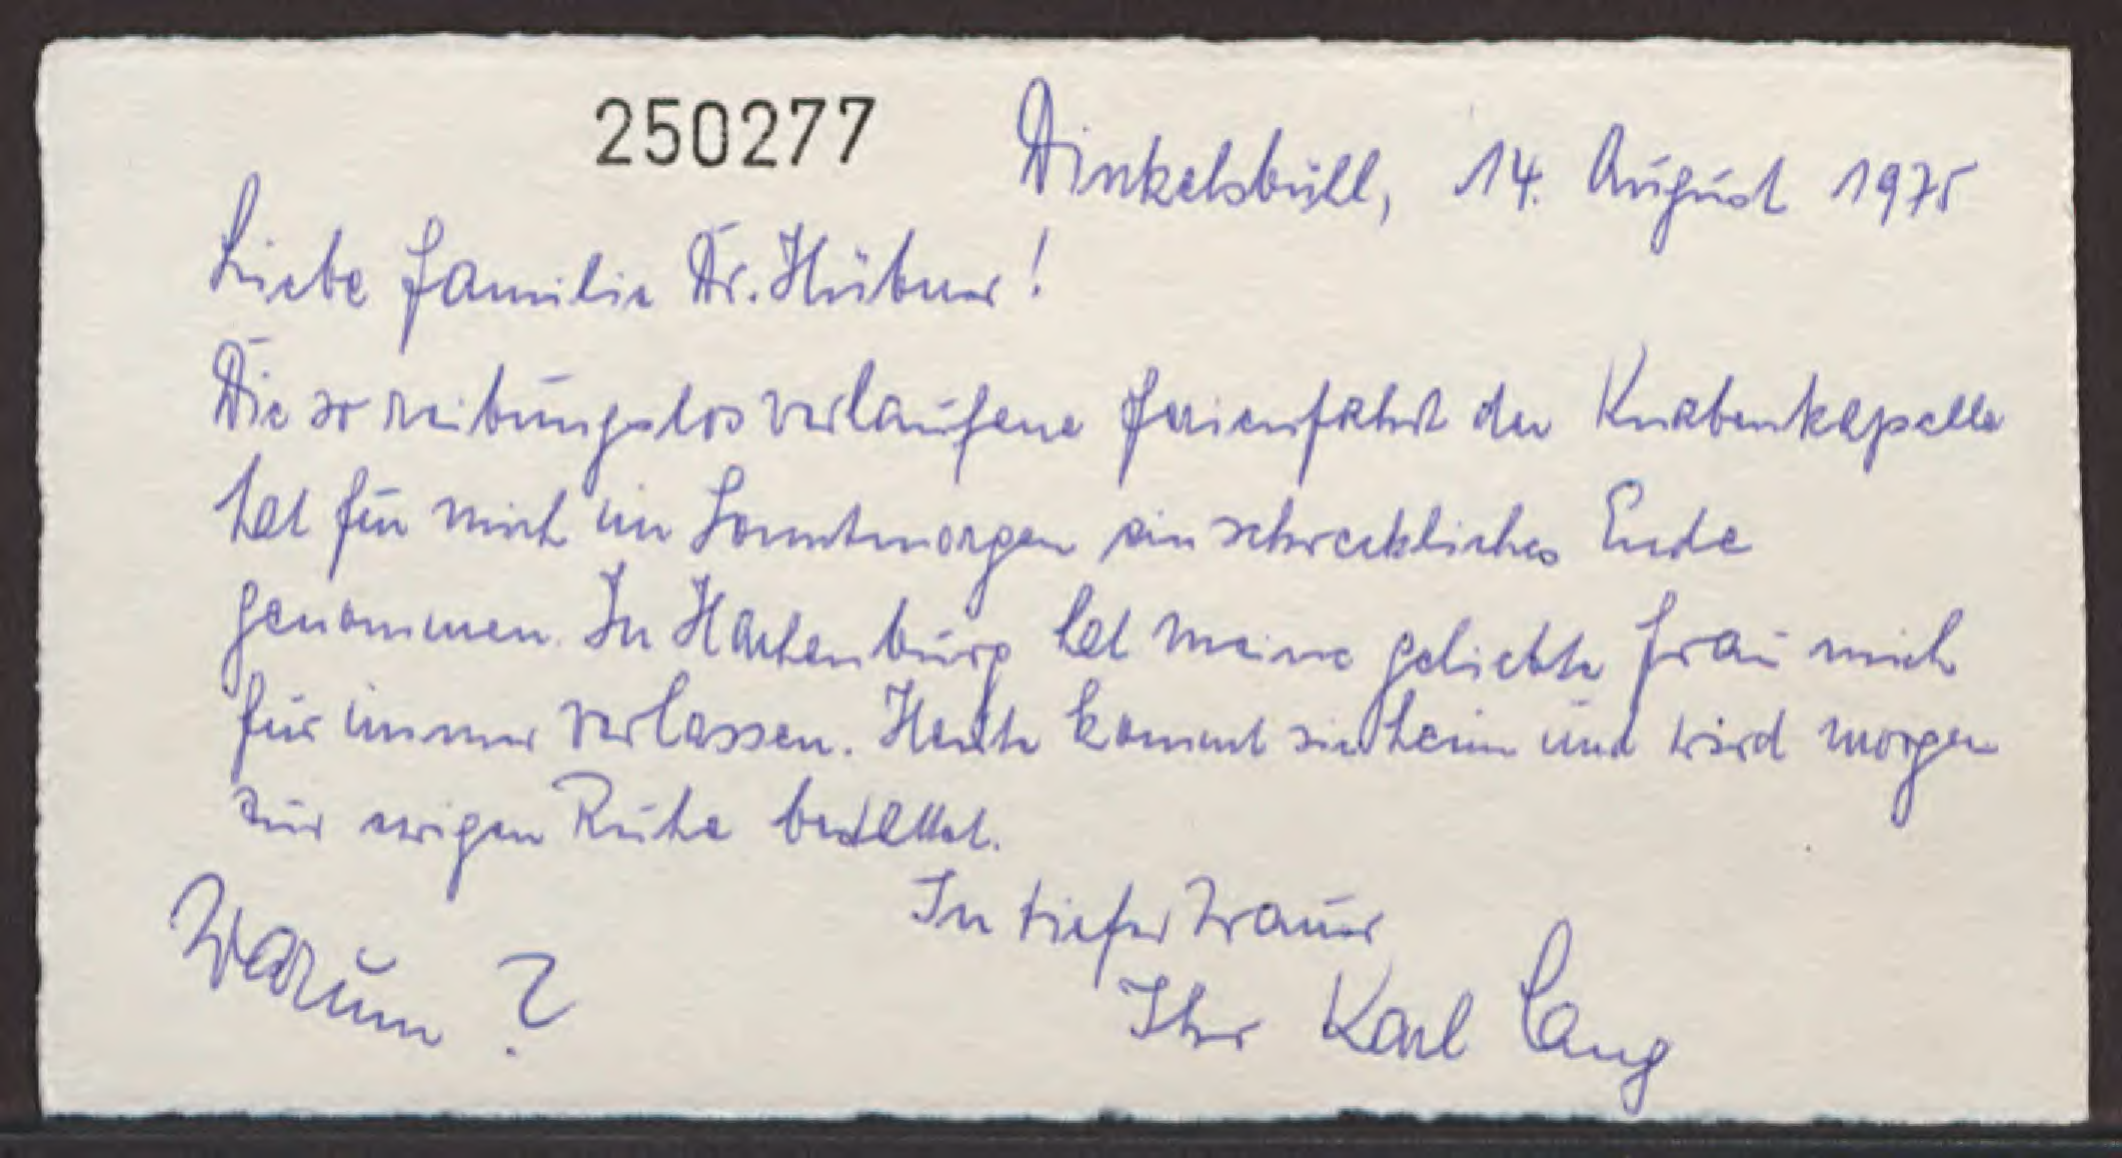 250277
Dinkelsbühl, 14. August 1975
Liebe Familie Dr. Hübner!
Die so reibungslos verlaufene Ferienfahrt der Knabenkapelle
hat für mich im Sonntmorgen ein schreckliches Ende
genommen. In Hachenburg hat meine geliebte Frau mich
für immer verlassen. Heute kommt sie heim und wird morgen
zur ewigen Ruhe bestattet.
In tiefer Trauer
Warum?
Ihr Karl Lang